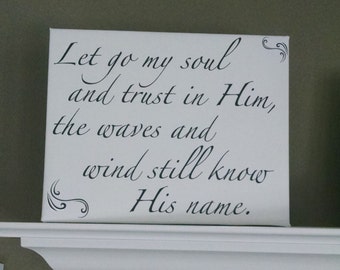 Let go my soul
and trust in Him,
the waves and
wind still know
His name.